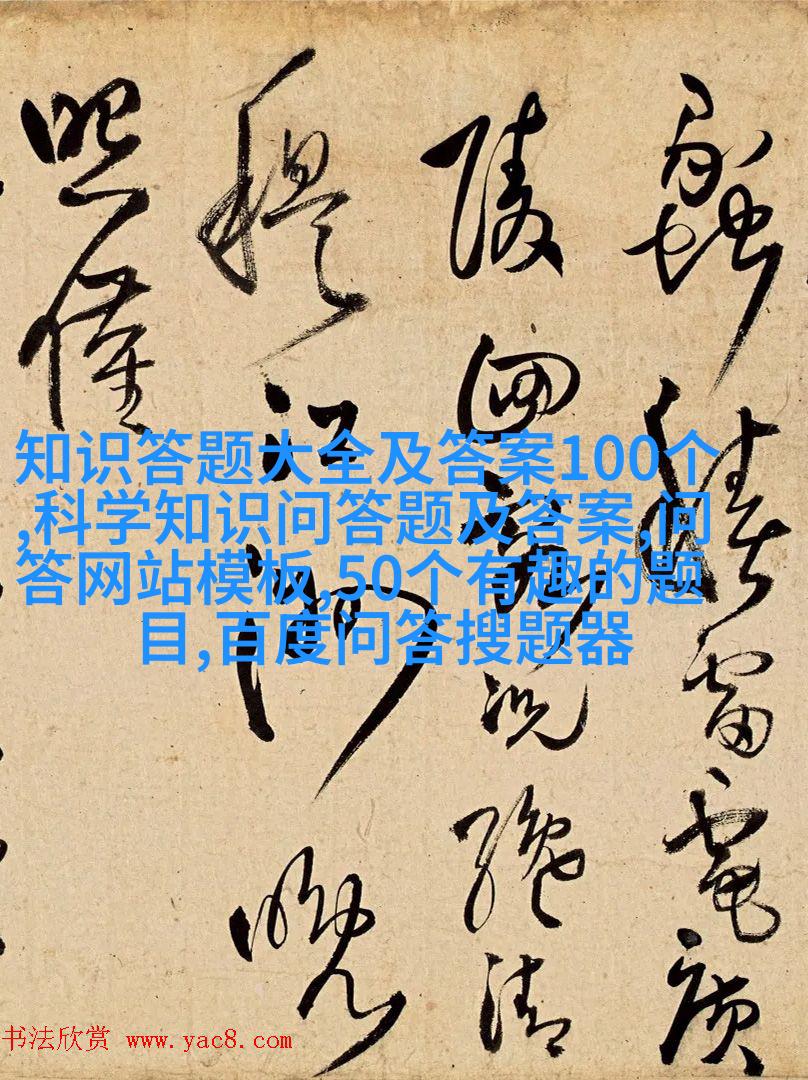 雷電廣
陵四況絕清
江湖晚
照僅
知识答题大全及答案100个
,科学知识问答题及答案,问
答网站模板,50个有趣的题
目,百度问答搜题器
书法欣赏 www.yac8.com